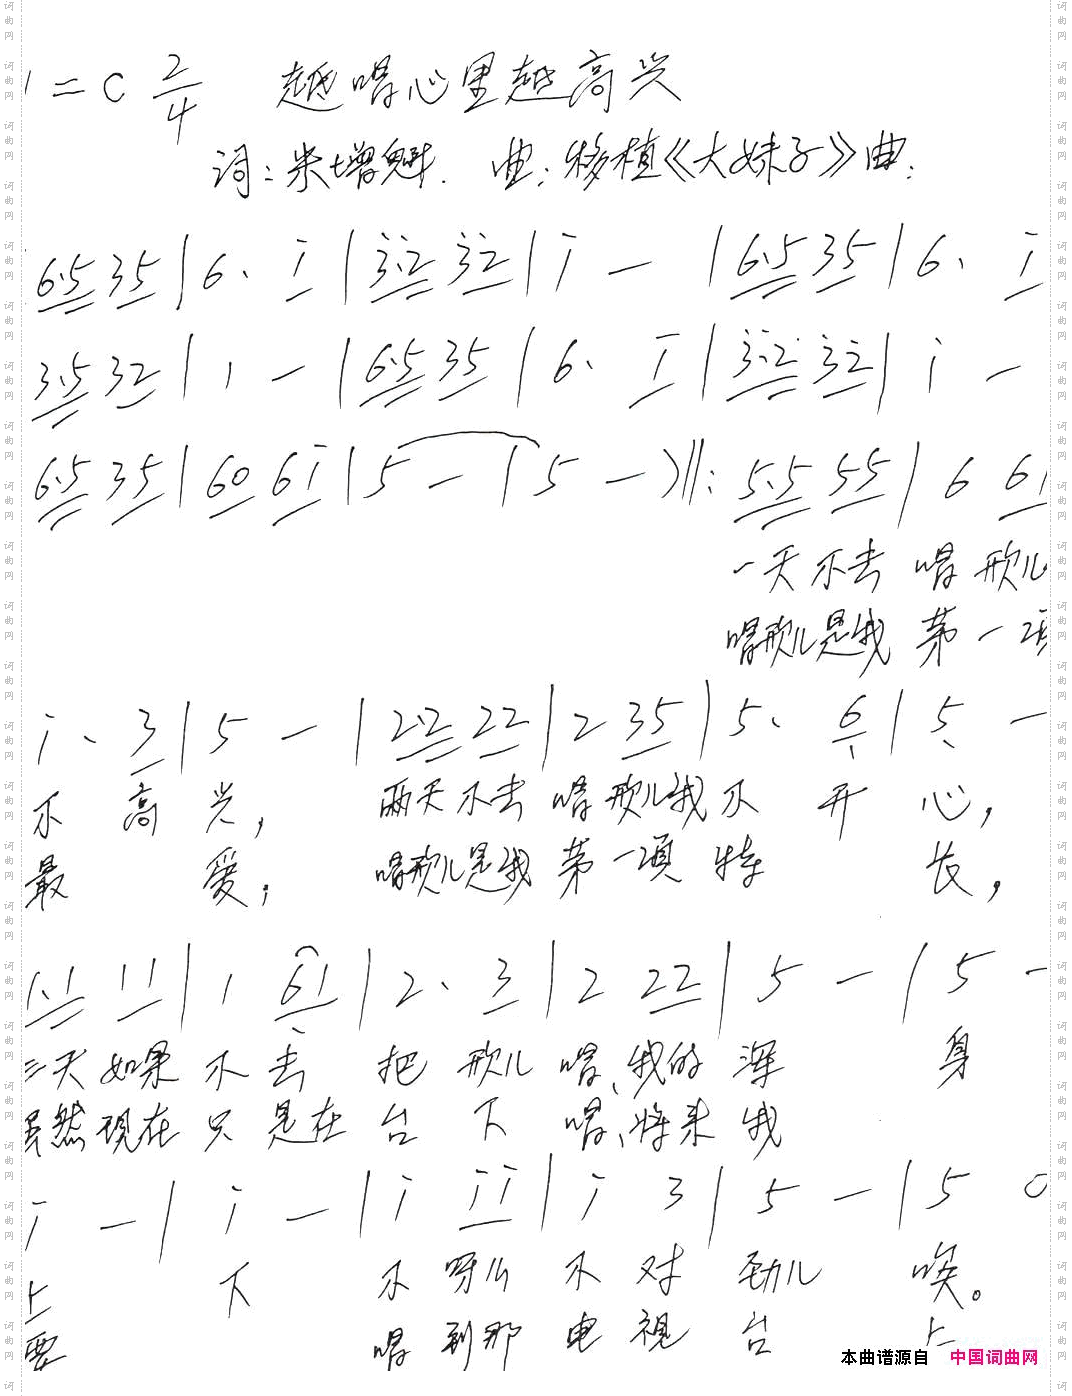 1=C 2/4 越唱心里越高兴
词:米增魁. 曲:移植《大妹子》曲.
6.5 35 | 6. i | 3.2 32 | i — | 6.5 35 | 6. i
3.5 32 | 1 — | 6.5 35 | 6. i | 3.2 32 | i —
6.5 35 | 60 6i | 5 — | 5 — )‖: 5.5 55 | 6 61
一天不去 唱 歌儿
唱歌儿是我 第一项
i. 3 | 5 — | 2.2 22 | 2 35 | 5. 6 | 5 —
不 高 兴, 两天不去 唱歌儿我不 开 心,
最 爱; 唱歌儿是我 第一项 特 长,
1.1 11 | 1 61 | 2. 3 | 2 22 | 5 — | 5 —
三天如果 不去 把 歌儿 唱、我的 浑 身
虽然现在 只是在 台 下 唱、将来 我
i — | i — | i ii | i 3 | 5 — | 5 0
上 下 不 呀么 不 对 劲儿 唉。
要 唱 到那 电 视 台 上
本曲谱源自 中国词曲网